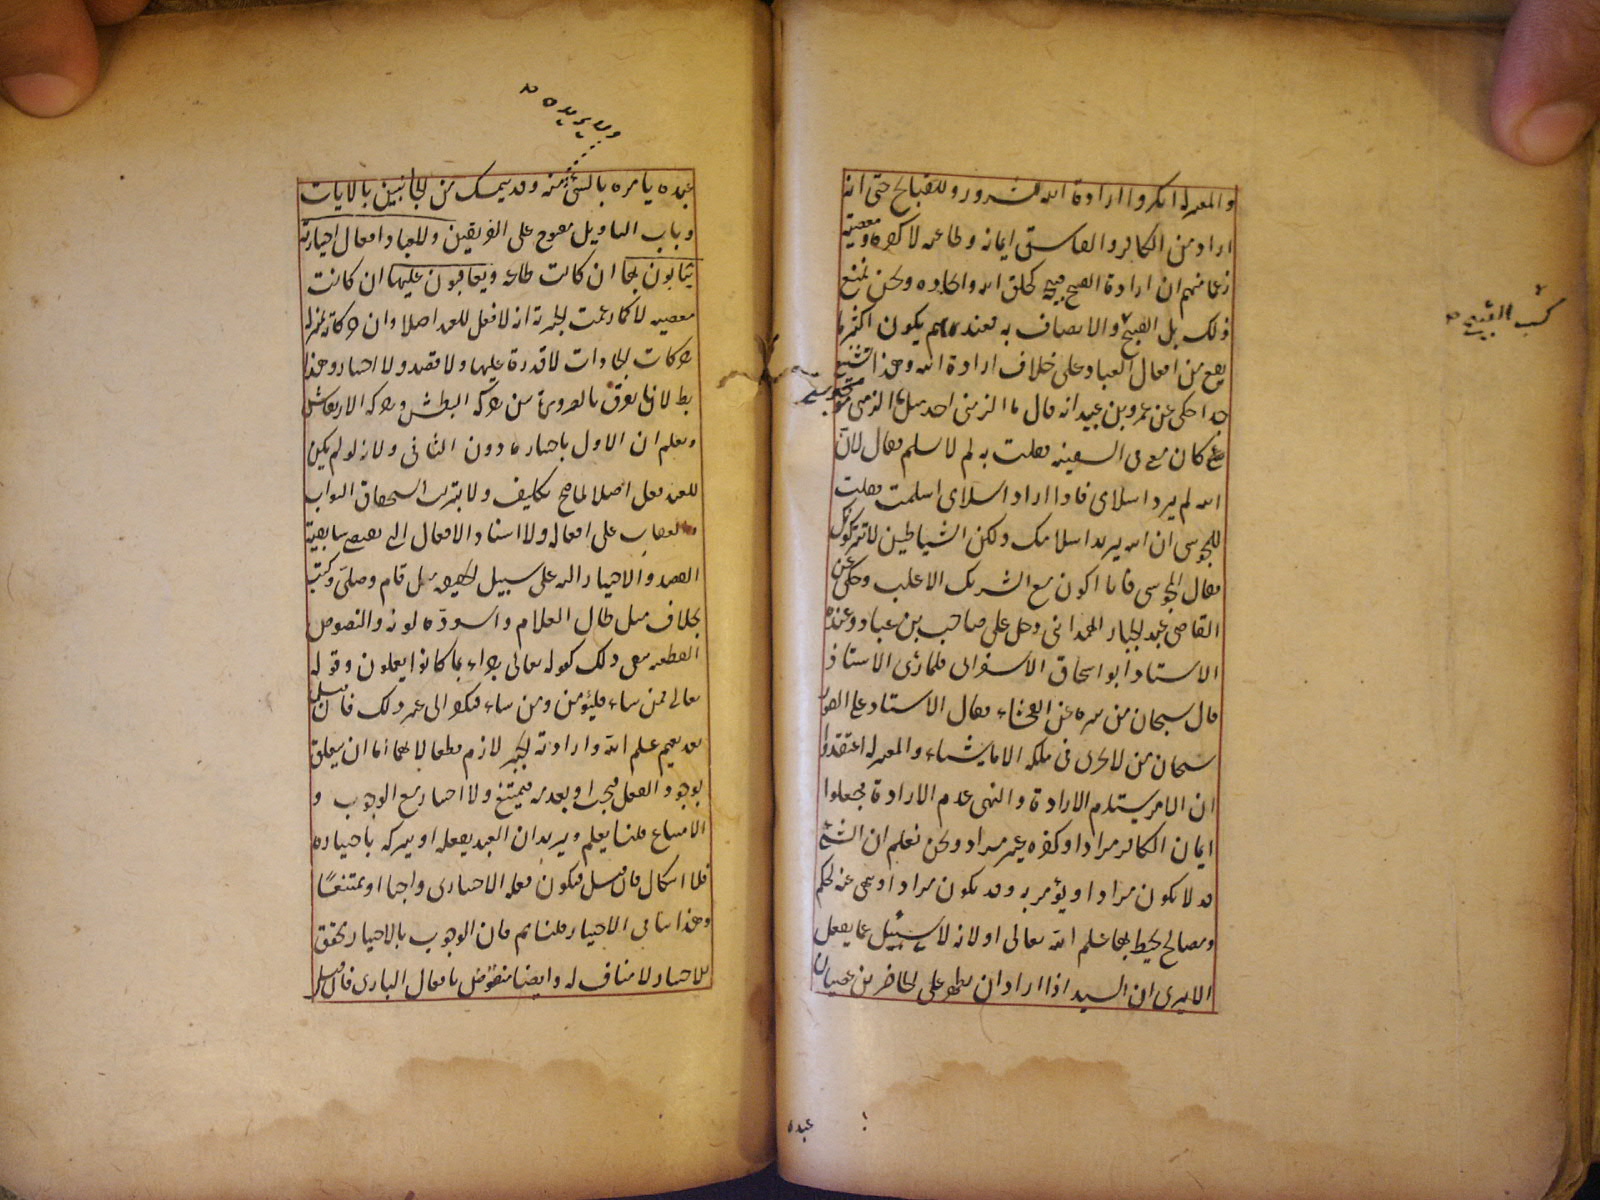 والمعتزله انكروا ارادة الله للشرور وللقبائح حتى انه
اراد من الكافر والفاسق ايمانه وطاعته لا كفره ومعصيته
زعما منهم ان ارادة القبيح قبيحة كخلق الله وايجاده ونحن نمنع
ذلك بل القبيح والاتصاف به فعندهم يكون اكثر ما
يقع من افعال العباد على خلاف ارادة الله وهذا شنيع
جدا حكى عن عمرو بن عبيد انه قال ما الزمنى احد مثل ما الزمنى مجوسى
كان معى فى السفينه فقلت به لم لا تسلم فقال لان
الله لم يرد اسلامى فاذا اراد اسلامى اسلمت فقلت
للمجوسى ان الله يريد اسلامك ولكن الشياطين لا تتركونك
فقال المجوسى فانا اكون مع الشريك الاغلب وحكى عن
القاضى عبد الجبار الهمدانى دخل على صاحب بن عباد وعنده
الاستاد ابو اسحاق الاسفرانى فلما رى الاستاذ
قال سبحان من تنزه عن الفحشاء فقال الاستاد على الفور
سبحان من لا يجرى فى ملكه الا ما يشاء والمعتزله اعتقدوا
ان الامر يستلزم الارادة والنهى عدم الارادة فجعلوا
ايمان الكافر مرادا وكفره غير مراد ونحن نعلم ان الشئ
قد لا يكون مرادا ويؤمر به وقد يكون مرادا وينهى عنه لحكم
ومصالح يحيط بها علم الله تعالى او لانه لا يسئل عما يفعل
الا يرى ان السيد اذا اراد ان يظهر على الحاضر من عصيان
عبده
كسب القبيح
ولا يريده
عبده يامره بالشئ منه وقد يتمسك من الجانبين بالايات
وباب التاويل مفتوح على الفريقين وللعباد افعال اختيارية
يثابون بها ان كانت طاعه ويعاقبون عليها ان كانت
معصيه لا كما زعمت الجبرية انه لا فعل للعبد اصلا وان حركاته بمنزله
حركات الجمادات لا قدرة عليها ولا قصد ولا اختيار وهذا
بط لانا نفرق بالضرورة بين حركه البطش وحركه الارتعاش
ونعلم ان الاول باختياره دون الثانى ولانه لو لم يكن
للعبد فعل اصلا لما صح تكليف ولا يترتب استحقاق الثواب
والعقاب على افعاله ولا اسناد الافعال التى تقتضى سابقية
القصد والاختيار اليه على سبيل الحقيقه مثل قام وصلى وكتب
بخلاف مثل طال الغلام واسودّه لونه والنصوص
القطعيه تنفى ذلك كقوله تعالى جزاء بما كانوا يعملون وقوله
تعالى فمن شاء فليؤمن ومن شاء فليكفر الى غير ذلك فان قيل
بعد تعميم علم الله وارادته الجبر لازم قطعا لانهما اما ان يتعلق
بوجود الفعل فيجب او بعدمه فيمتنع ولا اختيار مع الوجوب و
الامتناع قلنا يعلم ويريد ان العبد يفعله او يتركه باختياره
فلا اشكال فان قيل فيكون فعله الاختيارى واجبا او ممتنعًا
وهذا ينافى الاختيار قلنا نم فان الوجوب بالاختيار محقق
للاختيار لا مناف له وايضا منقوض بافعال البارى فان قيل